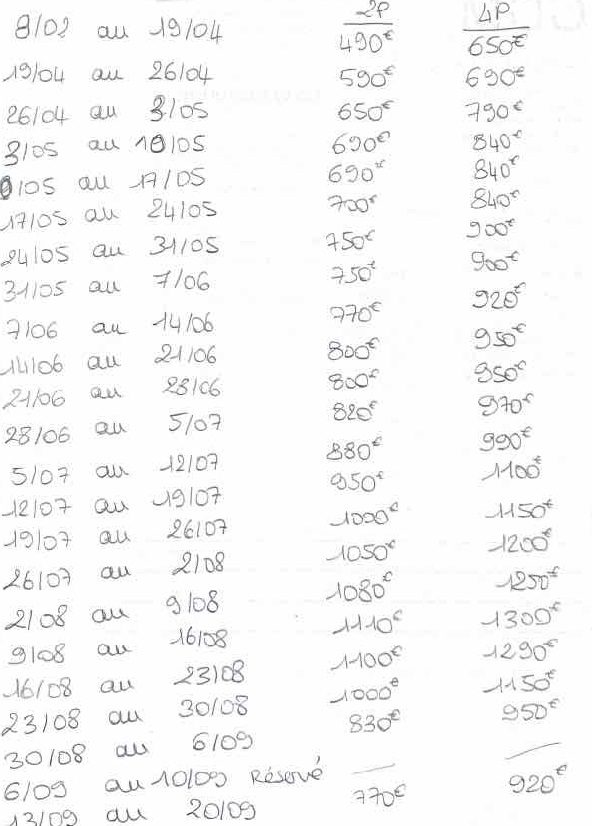 2P 4P
8/02 au 19/04 490€ 650€
19/04 au 26/04 590€ 690€
26/04 au 3/05 650€ 790€
3/05 au 10/05 690€ 840€
0/05 au 17/05 690€ 840€
17/05 au 24/05 700€ 840€
24/05 au 31/05 750€ 900€
31/05 au 7/06 750€ 900€
7/06 au 14/06 770€ 920€
14/06 au 21/06 800€ 950€
21/06 au 28/06 800€ 950€
28/06 au 5/07 820€ 970€
5/07 au 12/07 880€ 990€
12/07 au 19/07 950€ 1100€
19/07 au 26/07 1000€ 1150€
26/07 au 2/08 1050€ 1200€
2/08 au 9/08 1080€ 1250€
9/08 au 16/08 1110€ 1300€
16/08 au 23/08 1100€ 1290€
23/08 au 30/08 1000€ 1150€
30/08 au 6/09 830€ 950€
6/09 au 10/09 Réservé — —
13/09 au 20/09 770€ 920€